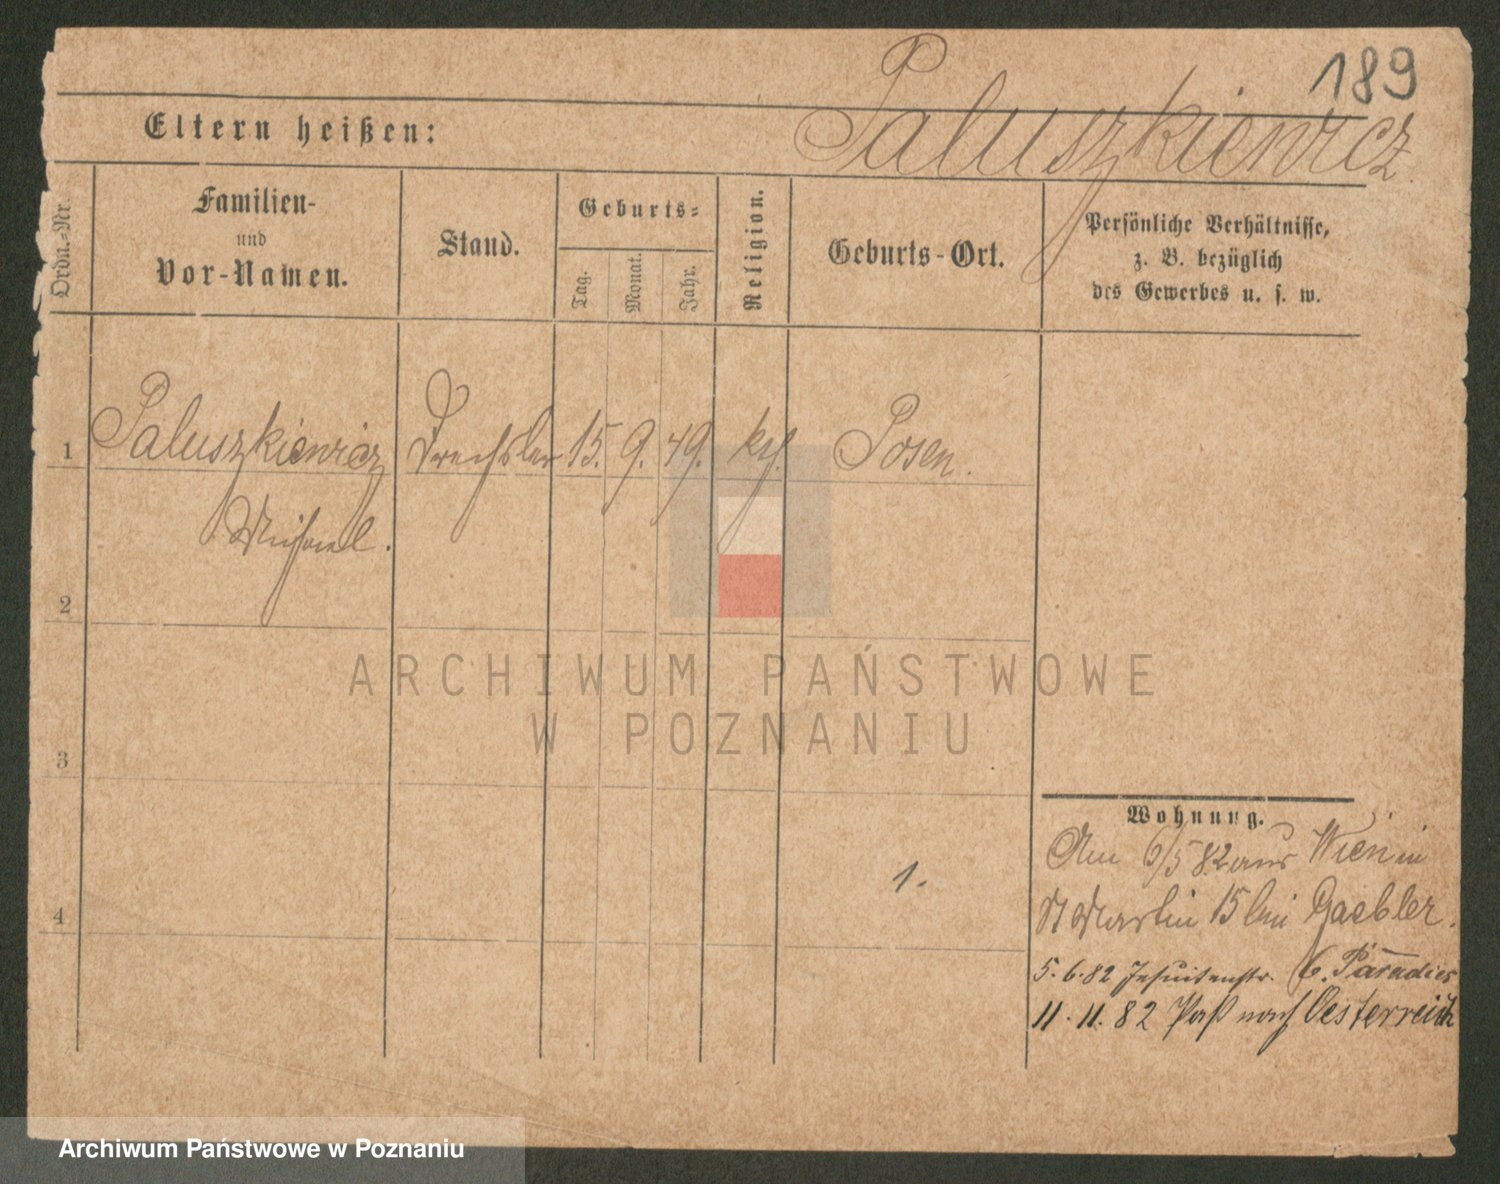 189
Paluszkiewicz.
Eltern heißen:
Ordn.-Nr.
Familien-
und
Vor-Namen.
Stand.
Geburts-
Tag.
Monat.
Jahr.
Religion.
Geburts-Ort.
Persönliche Verhältnisse,
z. B. bezüglich
des Gewerbes u. s. w.
1 Paluszkiewicz Drechsler 15. 9. 49. kth. Posen.
Michael.
2
3
4
1.
Wohnung.
Am 6/5 82 aus Wien in
St Martin 15 bei Gaebler.
5.6.82 Jesuitenstr. 6. Paradies
11.11.82 Paß nach Oesterreich
ARCHIWUM PAŃSTWOWE
W POZNANIU
Archiwum Państwowe w Poznaniu